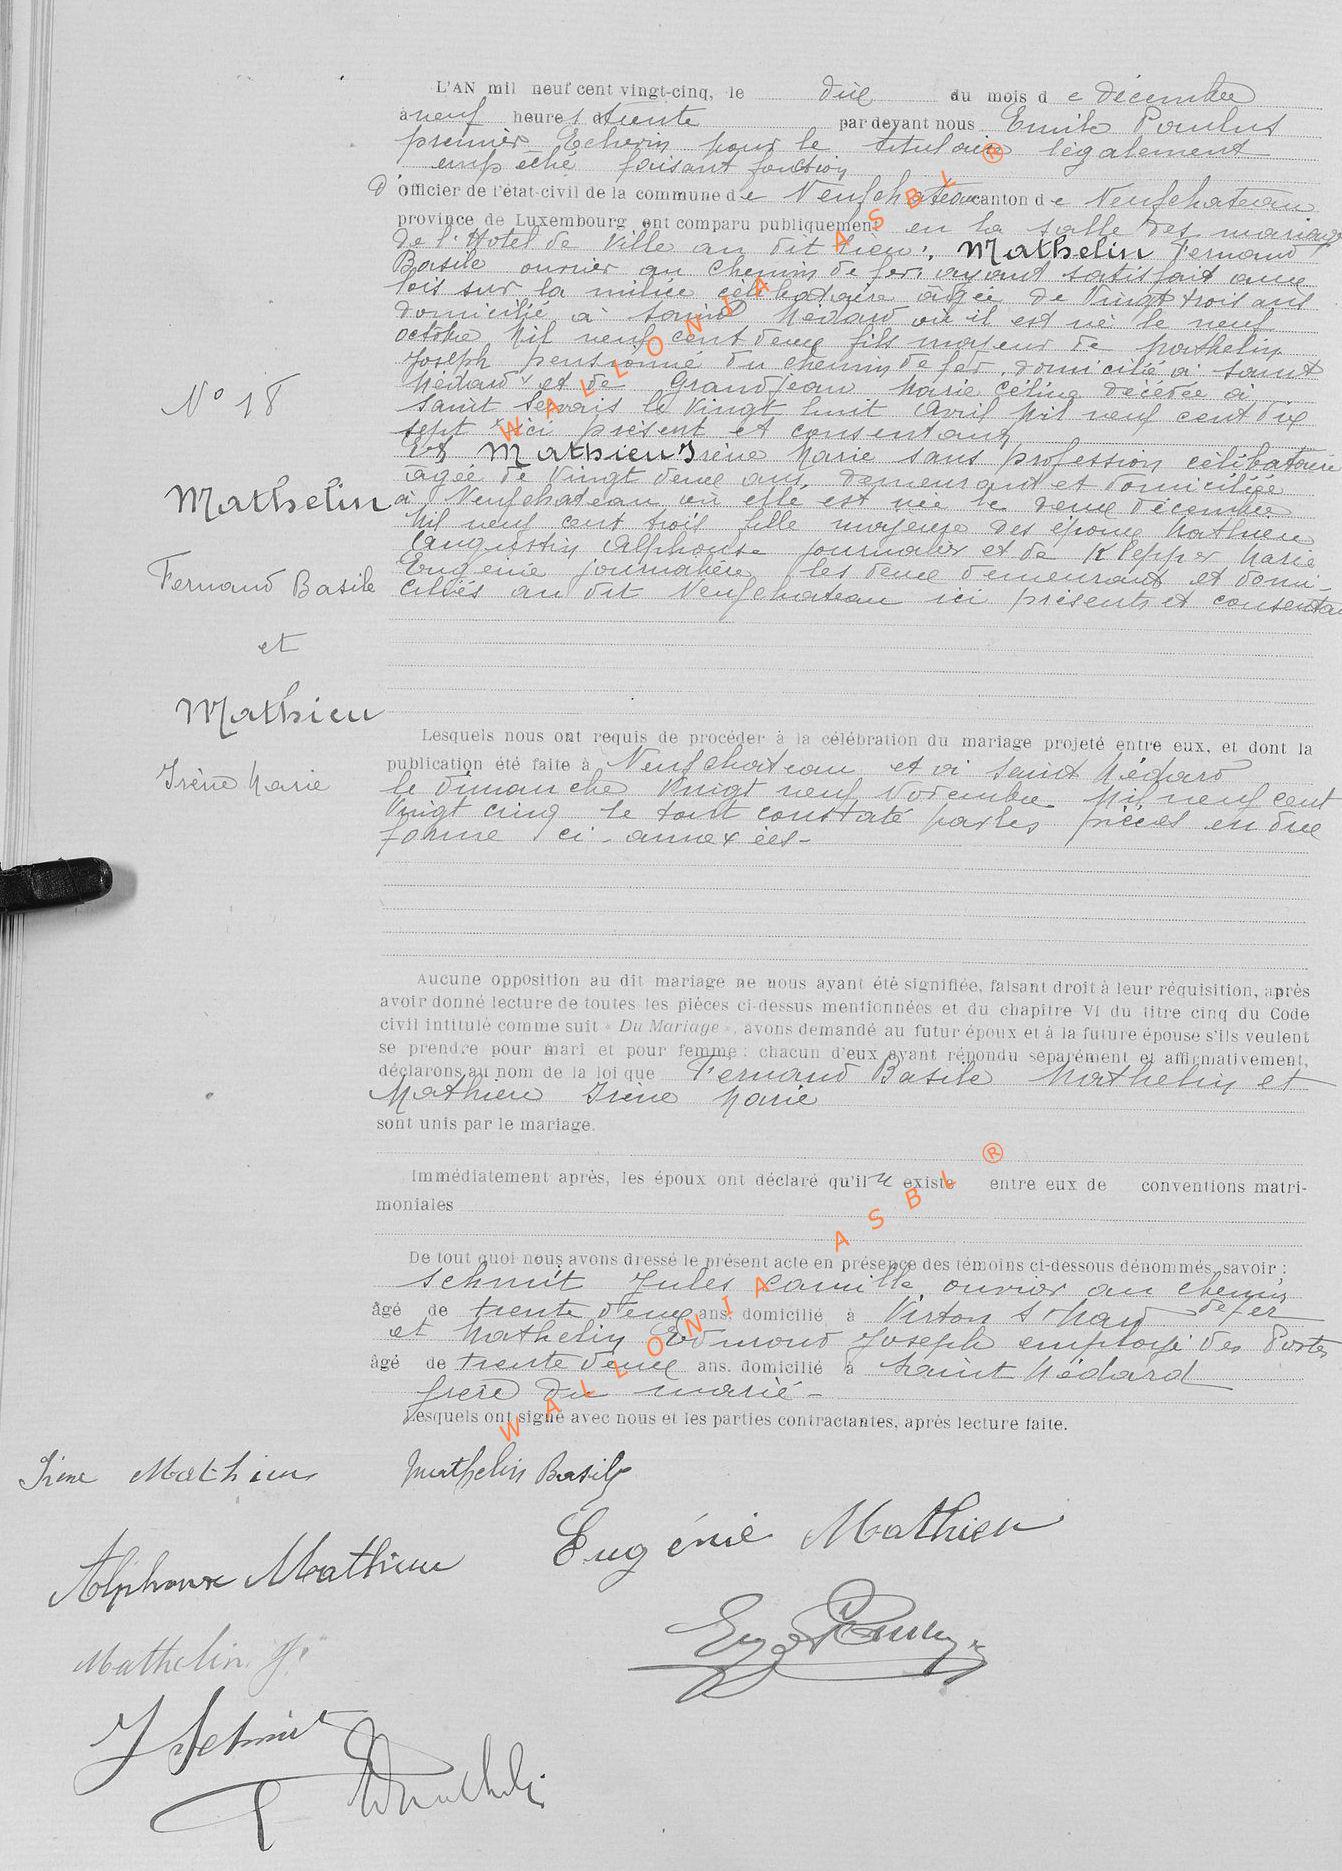 L'AN mil neuf cent vingt-cinq, le dix du mois de décembre
à neuf heures trente par devant nous Emile Poulus
premier Echevin pour le titulaire légalement
empêché faisant fonction
d'officier de l'état-civil de la commune de Neufchateau canton de Neufchateau
province de Luxembourg ont comparu publiquement en la salle des mariages
de l'Hotel de Ville au dit lieu: Mathelin Fernand
Basile ouvrier au chemin de fer, ayant satisfait aux
lois sur la milice célibataire âgé de Vingt trois ans
domicilié à Saint Médard où il est né le neuf
octobre Mil neuf cent deux fils majeur de Mathelin
Joseph pensionné du chemin de fer, domicilié à Saint
Médard et de Grandjean Marie Céline décédée à
Saint Servais le Vingt huit Avril Mil neuf cent dix
sept ici présent et consentant
Et Mathieu Irène Marie sans profession célibataire
N° 18
âgée de Vingt deux ans, demeurant et domiciliée
Mathelin
à Neufchateau où elle est née le deux décembre
Mil neuf cent trois fille majeure des époux Mathieu
Augustin Alphonse journalier et de Klepper Marie
Fernand Basile
Eugénie journalière les deux demeurant et domi-
ciliés au dit Neufchateau ici présents et consentants
et
Mathieu
Irène Marie
Lesquels nous ont requis de procéder à la célébration du mariage projeté entre eux, et dont la
publication été faite à Neufchateau et à Saint Médard
le dimanche Vingt neuf Novembre Mil neuf cent
Vingt cinq le tout constaté par les pièces en due
forme ci-annexées-
Aucune opposition au dit mariage ne nous ayant été signifiée, faisant droit à leur réquisition, après
avoir donné lecture de toutes les pièces ci-dessus mentionnées et du chapitre VI du titre cinq du Code
civil intitulé comme suit « Du Mariage », avons demandé au futur époux et à la future épouse s'ils veulent
se prendre pour mari et pour femme : chacun d'eux ayant répondu séparément et affirmativement,
déclarons au nom de la loi que Fernand Basile Mathelin et
Mathieu Irène Marie
sont unis par le mariage.
Immédiatement après, les époux ont déclaré qu'il n'existe entre eux de conventions matri-
moniales
De tout quoi nous avons dressé le présent acte en présence des témoins ci-dessous dénommés, savoir :
Schmit Jules Camille, ouvrier au chemin
de fer
âgé de trente deux ans, domicilié à Virton St Mard
et Mathelin Edmond Joseph employé des Postes
âgé de trente deux ans, domicilié à Saint Médard
frère du marié-
Lesquels ont signé avec nous et les parties contractantes, après lecture faite.
Irène Mathieu Mathelin Basile
Alphonse Mathieu Eugénie Mathieu
Mathelin J.
J Schmit
WALLONIA ASBL ®
WALLONIA ASBL ®